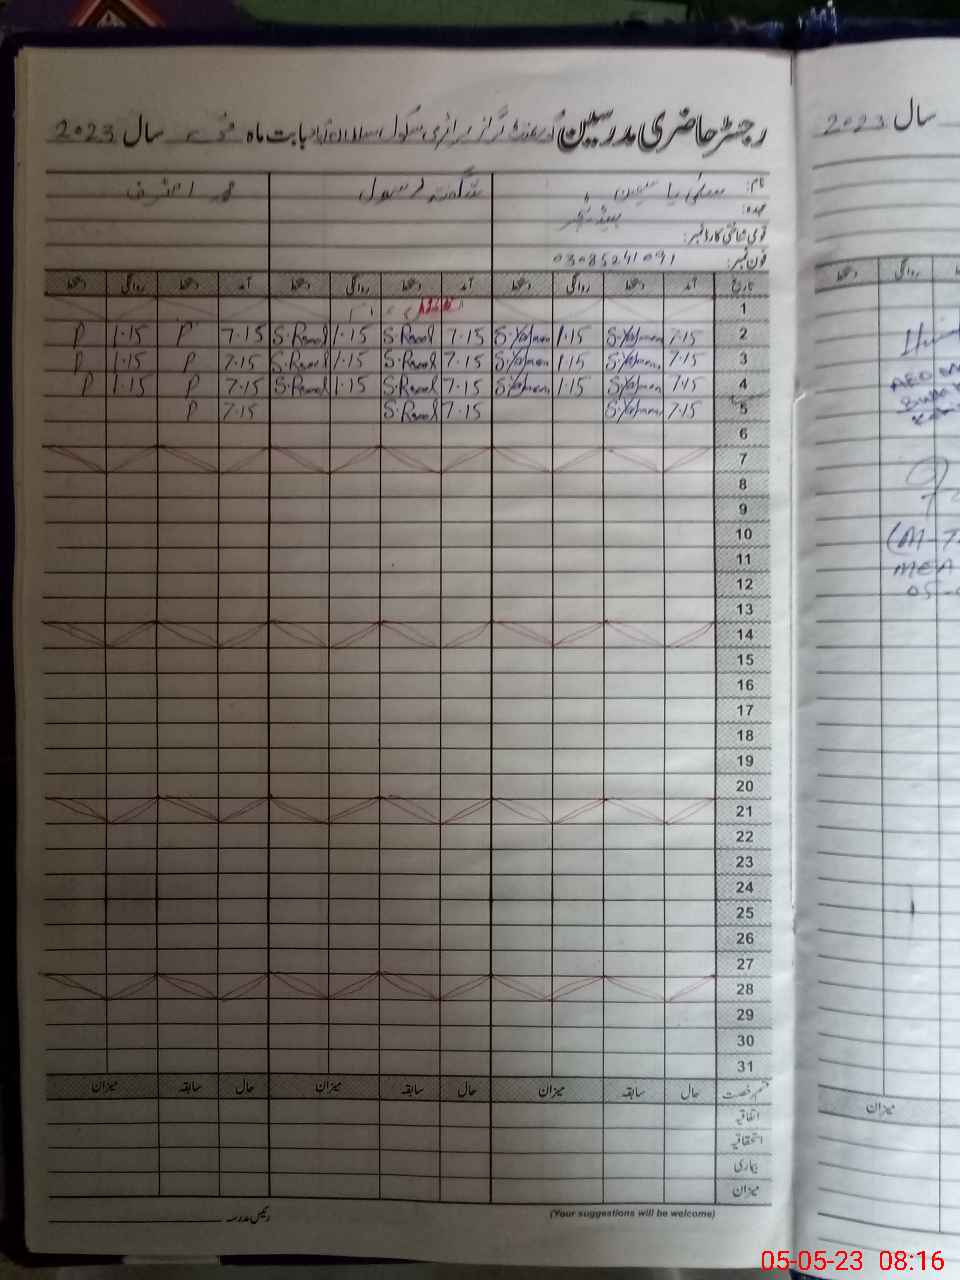 رجسٹر حاضری مدرسین گورنمنٹ گرلز پرائمری سکول بابت ماہ مئی سال 2023
نام: سلمیٰ یاسمین شگفتہ رسول محمد اشرف
عہدہ: ہیڈ ٹیچر
قومی شناختی کارڈ نمبر:
فون نمبر: 03085241091
تاریخ آمد دستخط روانگی دستخط آمد دستخط روانگی دستخط آمد دستخط روانگی دستخط
1
2 7:15 S.Yasmeen 1:15 S.Yasmeen 7:15 S.Rasool 1:15 S.Rasool 7:15 P 1:15 P
3 7:15 S.Yasmeen 1:15 S.Yasmeen 7:15 S.Rasool 1:15 S.Rasool 7:15 P 1:15 P
4 7:15 S.Yasmeen 1:15 S.Yasmeen 7:15 S.Rasool 1:15 S.Rasool 7:15 P 1:15 P
5 7:15 S.Yasmeen 7:15 S.Rasool 7:15 P
6
7
8
9
10
11
12
13
14
15
16
17
18
19
20
21
22
23
24
25
26
27
28
29
30
31
قسم رخصت حال سابقہ میزان حال سابقہ میزان حال سابقہ میزان
اتفاقیہ
استحقاقیہ
بیماری
میزان
(Your suggestions will be welcome)
رئیس مدرسہ
سال 2023
روانگی دستخط
AEO
MEA
میزان
05-05-23 08:16